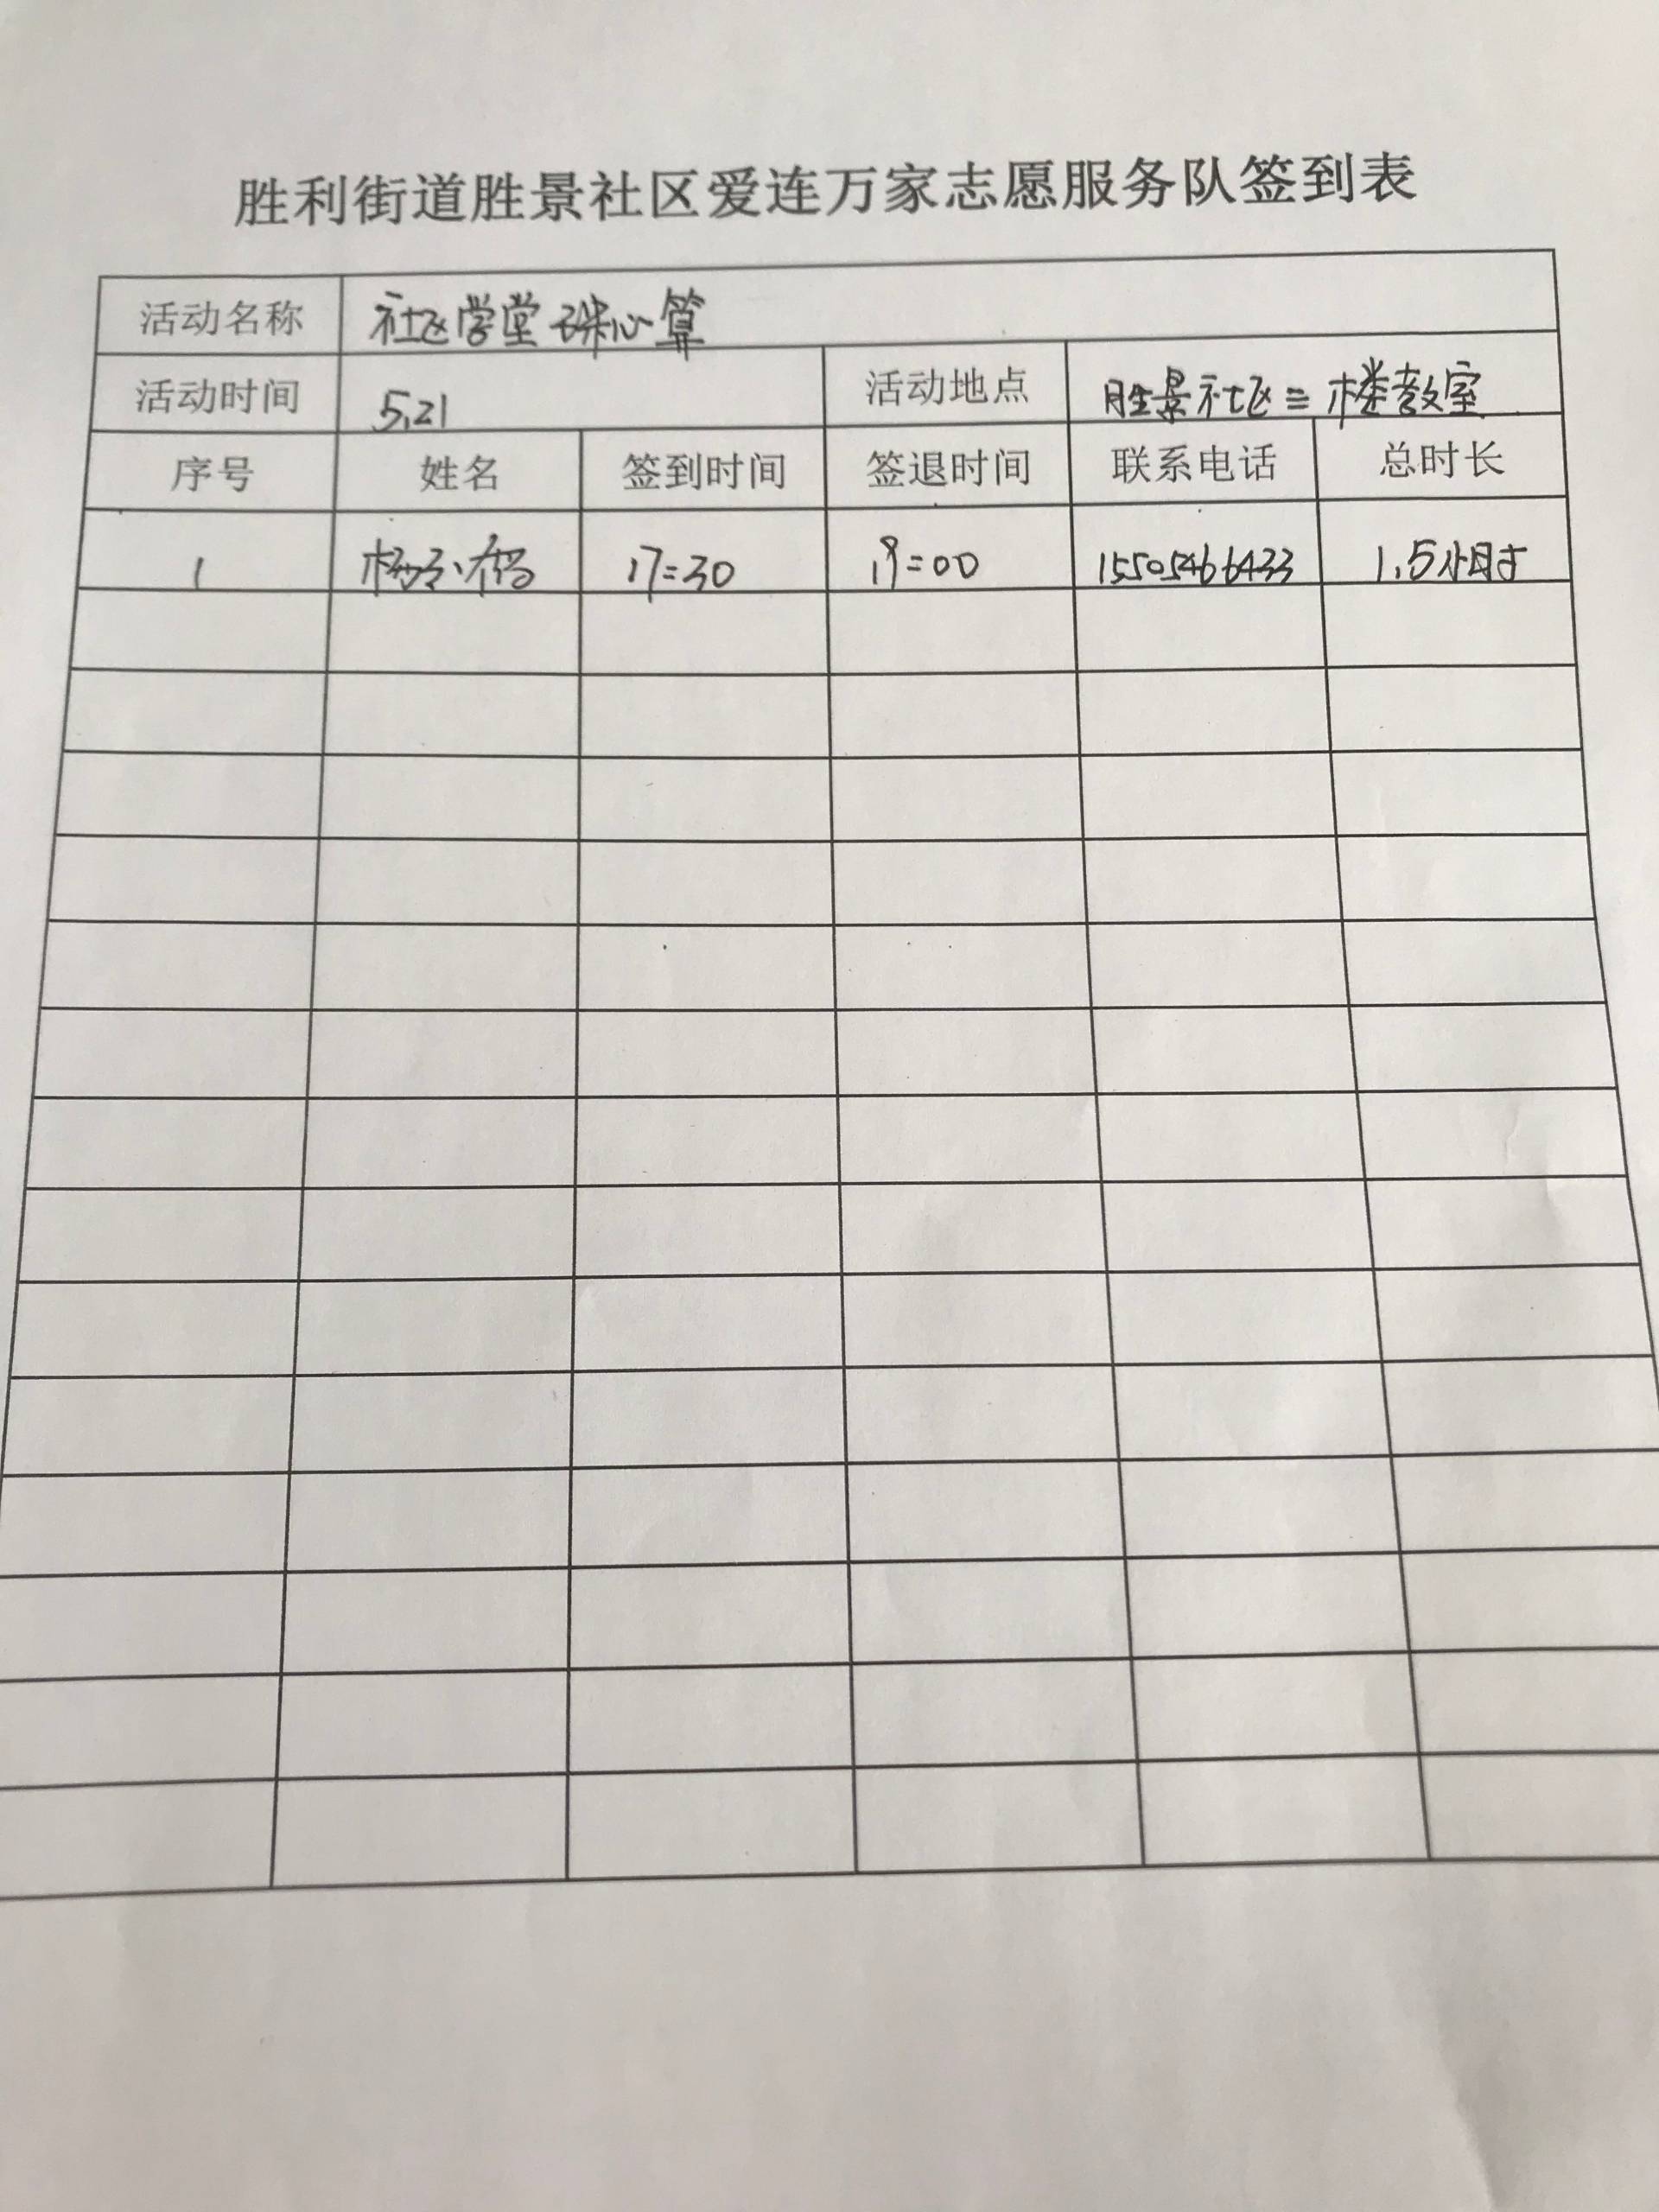 胜利街道胜景社区爱连万家志愿服务队签到表
活动名称 社区学堂珠心算
活动时间 5.21 活动地点 胜景社区三楼教室
序号 姓名 签到时间 签退时间 联系电话 总时长
1 17:30 19:00 15505466433 1.5小时